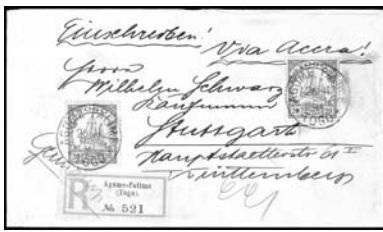 Einschreiben!
Via Accra!
Herrn
Wilhelm Schwarz
Kaufmann
Stuttgart
Hauptstaetterstr 61 I
Württemberg
TOGO
TOGO
R
Agome-Palime
(Togo).
No 521